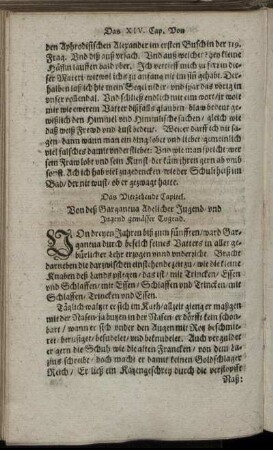 Das XIV. Cap. Von
den Aphrodisischen Alexander im ersten Busch in der 119.
Frag. Und diß auß ursach. Und auß welcher
Hosen lauffen bald aber. Ich
Materi wiewol ich zu anfang mit im sin gehabt.
halben laß ich hie mein Segel nider, und spar das
unser Und schließ endlich mit eim wort, ir wölt
mir wie ewerm Vatter dißfalls glauben: blaw bedeut
wißlich den Himmel und Himmlische sachen, gleich wie
daß weiß Frewd und lust bedeut. Wer darff ich nu
sagen, dann wann man ein ding lobet und liebet, gemeinlich
viel falscher darunder stecket: Und wie man spricht wer
sein Fraw lobt und sein Kunst, der kām ihren gern ab umb
sonst. Ach ich hab viel zugedencken, wie der Schulthes im
Bad, der nit wust, ob er gezwagt hatte.
Das Vierzehende Capitel.
Von deß Gargantua Adelicher Jugend und
Jugend gemässer Tugend.
VOn dreyen Jahren biß zum fünfften, ward Gar-
gantua durch befelch seines Vatters in aller ge-
bürlicher Lehr erzogen unnd underzicht. Brachte
darneben die zeit zu, wie die kleine
Knaben deß Lands pflegen, das ist, mit Trincken, Essen
und Schlaffen, mit Essen, Schlaffen und Trincken, mit
Schlaffen, Trincken und Essen.
Täglich waltzt er sich im Kath, allzeit gieng er maßgen
mit der Nasen, ja butzen in der Nasen, er dörfft kein schon-
bart, wann er sich under den Augen mit Rotz beschmier-
et, berußiget, besudelet, und bekrudelet. Auch vergüldet
er gern die Schuh wie die alten Francken, von dem
doch macht er damit keinen Goldschlager
Reich, Er ließ ein Katzengeschrey durch die verstopffte
Naß: